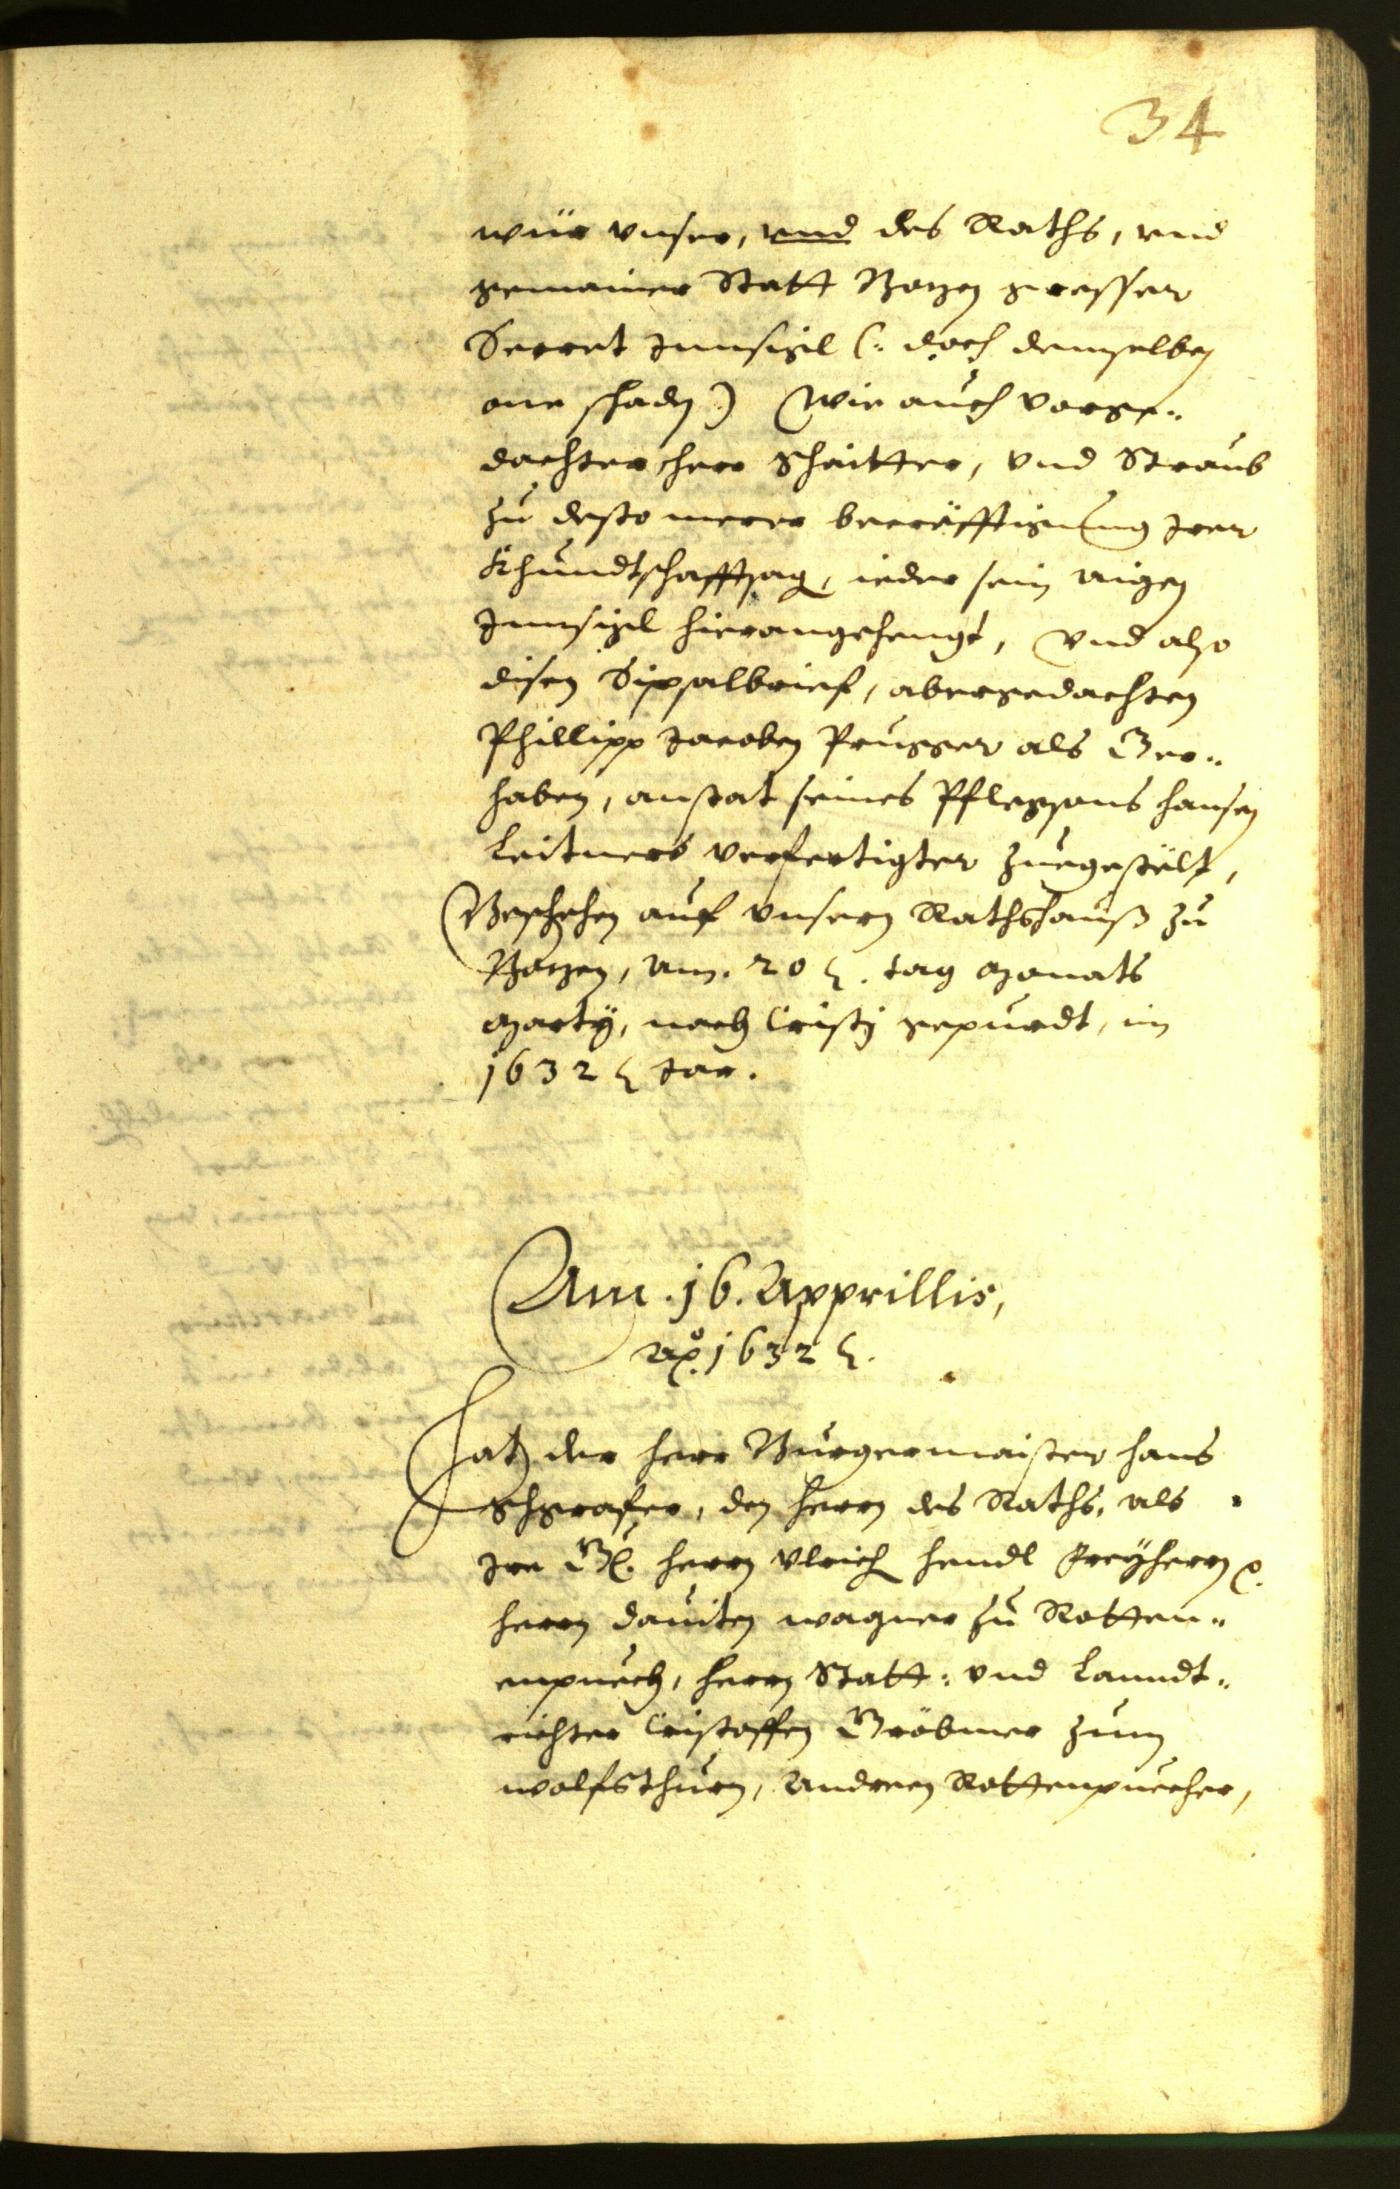 34
wür vnser, vnd des Raths, vnd
gemainer Statt Bozen grosser
Secret Innsigl (: doch demselben
one schaden) Wie auch vorge¬
dachter herr Schaitter, vnd Straub
zu desto merer becräfftigung Irer
Khundtschafftsag, ieder sein aigen
Innsigl hierangehengt, Vnd also
disen Sipsalbrief, abergedachten
Phillipp Jacoben Prugger als Ger¬
haben, anstat seines Pflegsons hansen
Leitners verfertigter zuegestelt,
Beschehen auf vnserm Rathshauß zu
Bozen, am. 20 ten. tag Monats
Marty, nach Cristj gepurdt, im
1632 ten Jar.
Am. 16. Apprillis,
Ao. 1632 ten.
Hat der herr Burgermaister hans
Schgrafer, den herrn des Raths, als
Ire G. herrn Vlrich hendl Freyherrn p.
herrn dauiten wagner zu Rotten¬
enpuech, herrn Statt: vnd Lanndt¬
richter Cristoffen Gröbmer zum
wolfsthurn, Andreen Rottenpuecher,